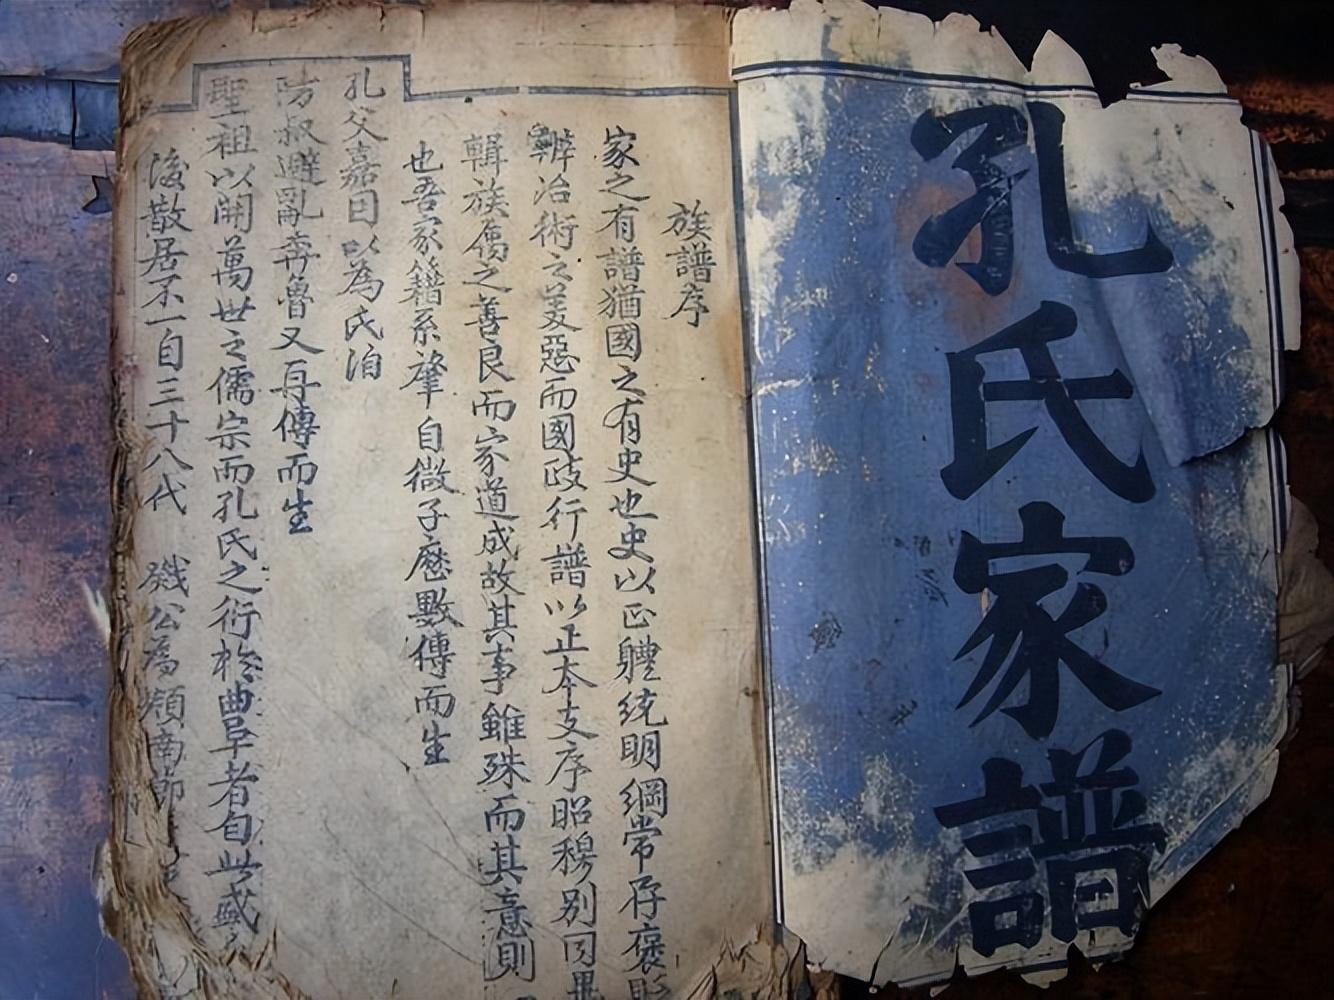 孔氏家譜
族譜序
家之有譜猶國之有史也史以正體統明綱常存褒貶
辦治術之美惡而國政行譜以正本支序昭穆別同異
輯族属之善良而家道成故其事雖殊而其意則
也吾家籍系肇自微子歷數傳而生
孔父嘉因以為氏洎
防叔避亂奔魯又再傳而生
聖祖以開萬世之儒宗而孔氏之衍於曲阜者自此盛
後散居不一自三十八代 磯公為嶺南節